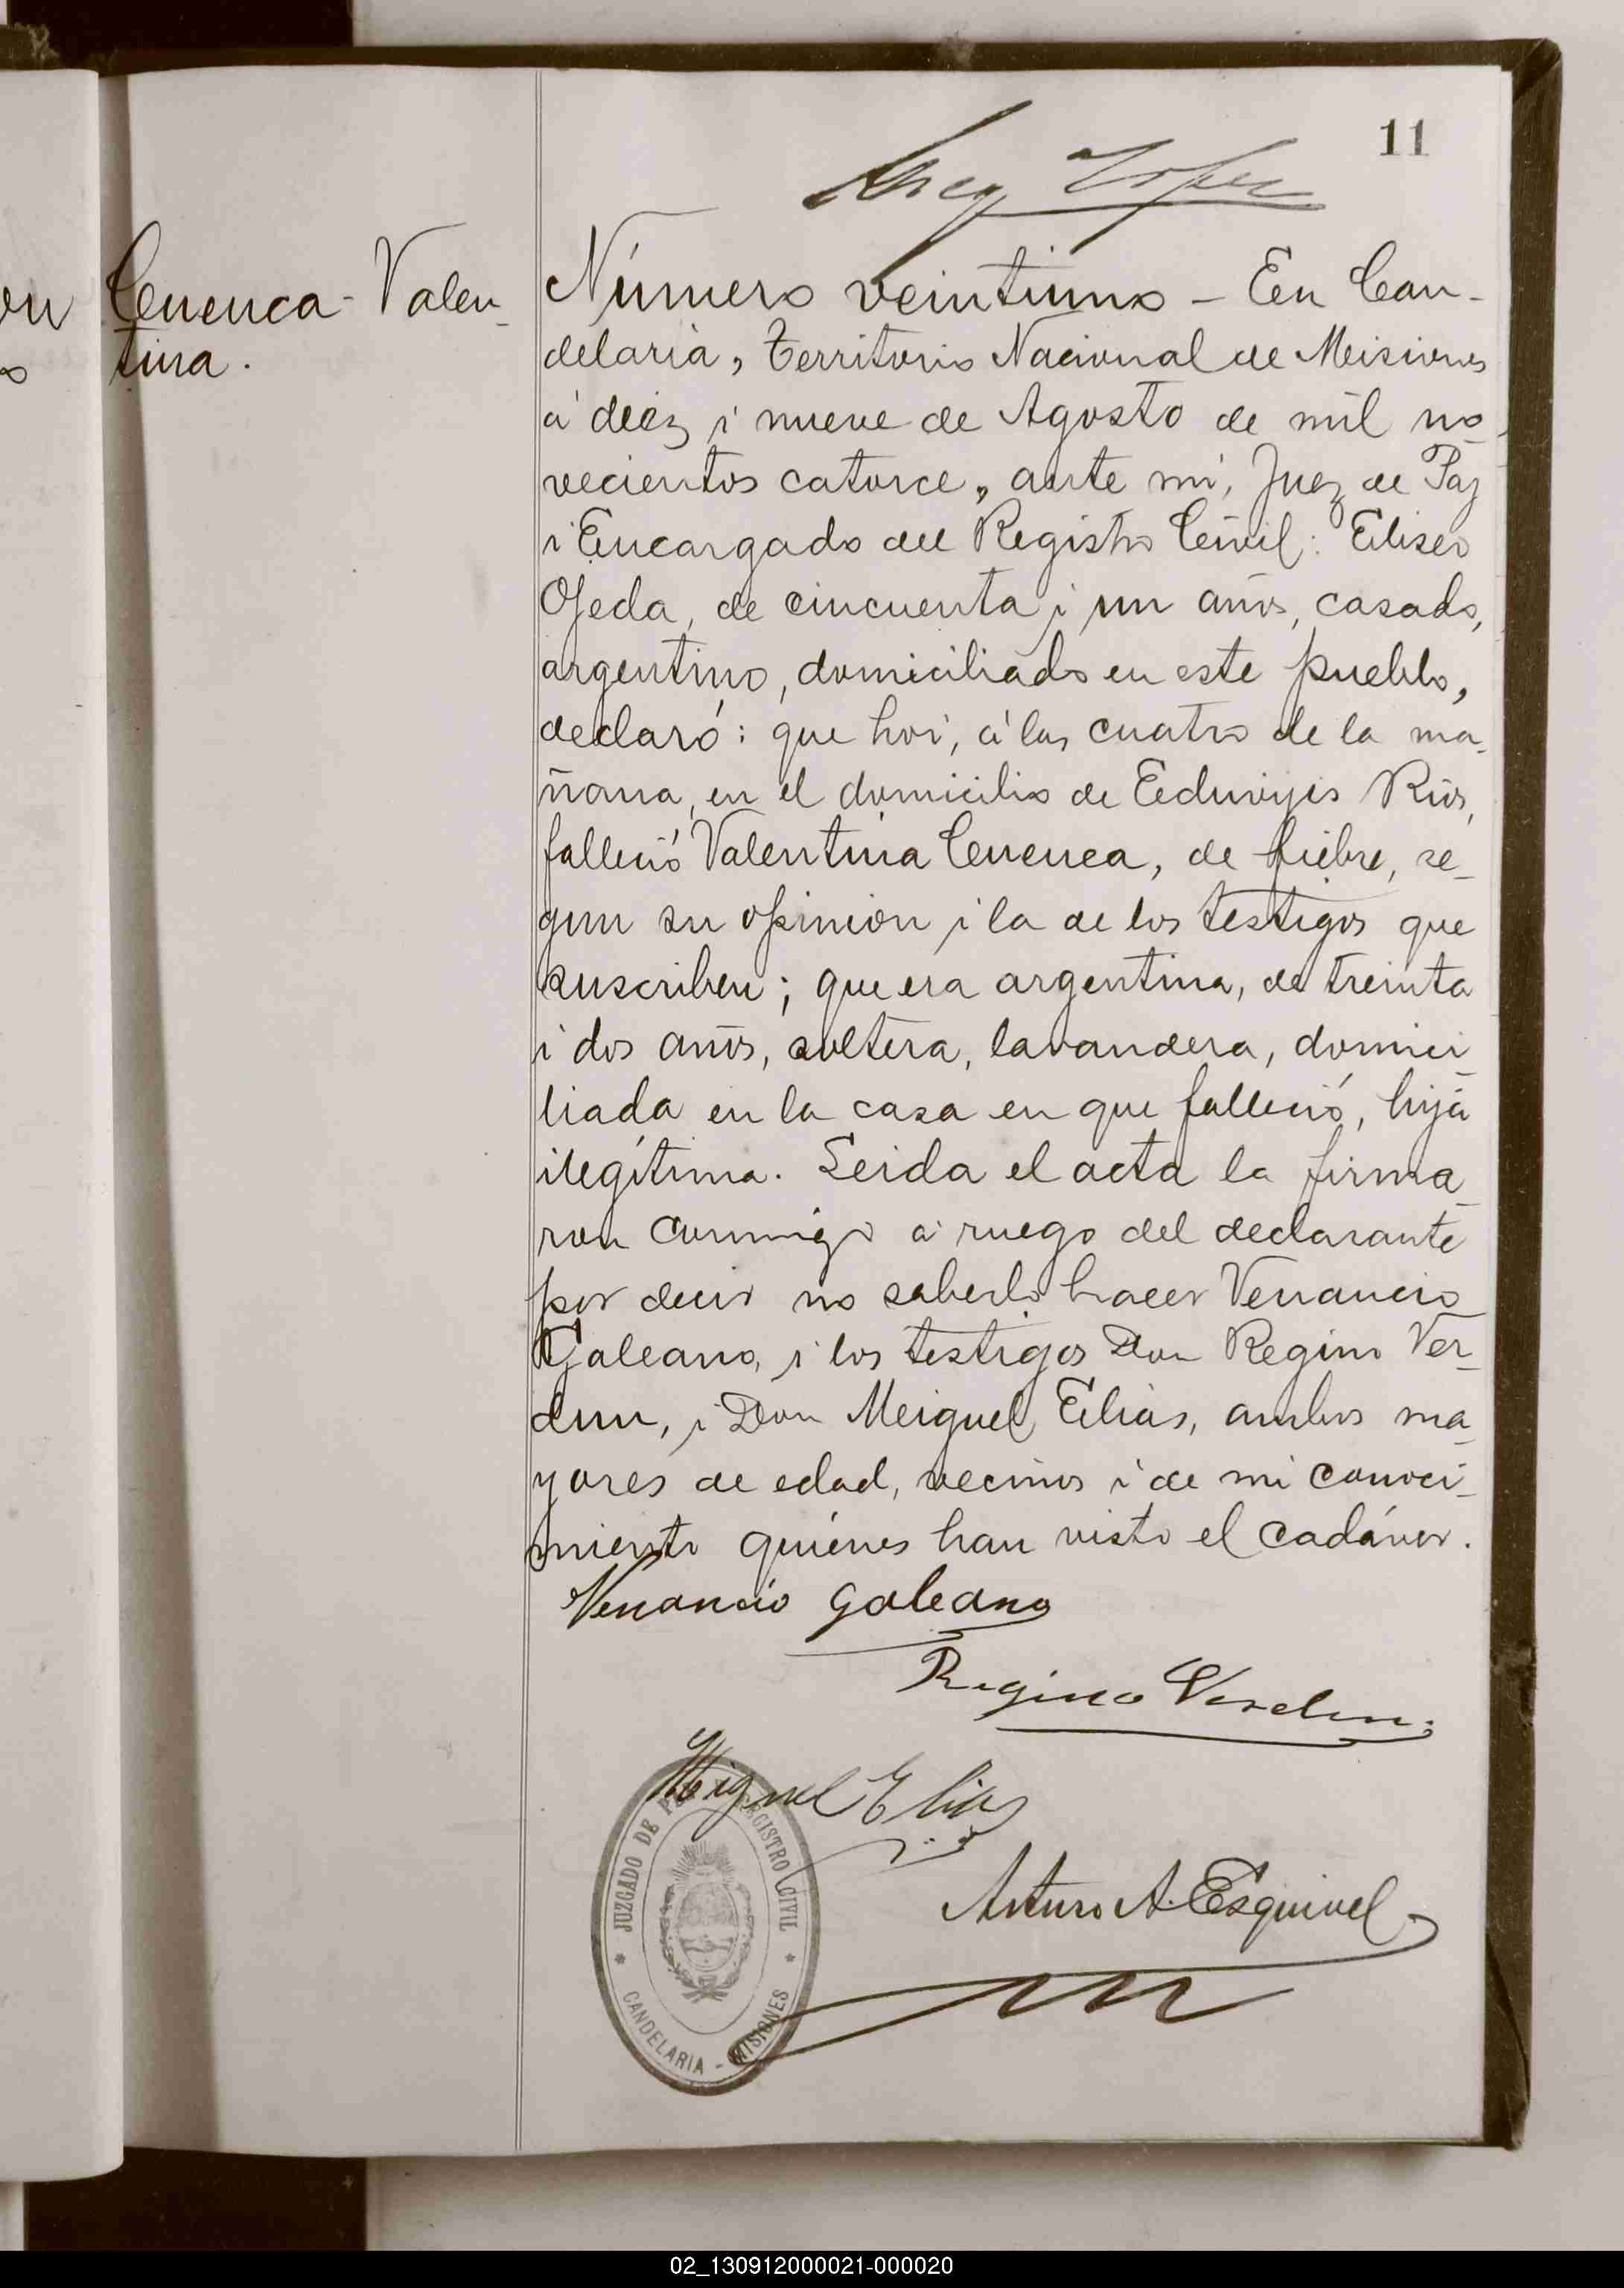 11
Cuenca - Valen-
tina.
Número veintiuno - En Can-
delaria, Territorio Nacional de Misiones
á diez i nueve de Agosto de mil no-
vecientos catorce, ante mi, Juez de Paz
i Encargado del Registro Civil: Eliseo
Ojeda, de cincuenta i un años, casado,
argentino, domiciliado en este pueblo,
declaró: que hoi, á las cuatro de la ma-
ñana, en el domicilio de Eduvijis Rios,
falleció Valentina Cuenca, de fiebre, se-
gun su opinion i la de los testigos que
suscriben; que era argentina, de treinta
i dos años, soltera, lavandera, domici-
liada en la casa en que falleció, hija
ilegítima. Leida el acta la firma-
ron conmigo a ruego del declarante
por decir no saberlo hacer Venancio
Galeano, i los testigos Don Regino Ver-
dun, i Don Miguel Elias, ambos ma-
yores de edad, vecinos i de mi conoci-
miento quiénes han visto el cadáver.
Venancio Galeano
Regino Verdun
Miguel Elias
JUZGADO DE REGISTRO CIVIL
Arturo A. Esquivel
CANDELARIA - MISIONES
02_130912000021-000020